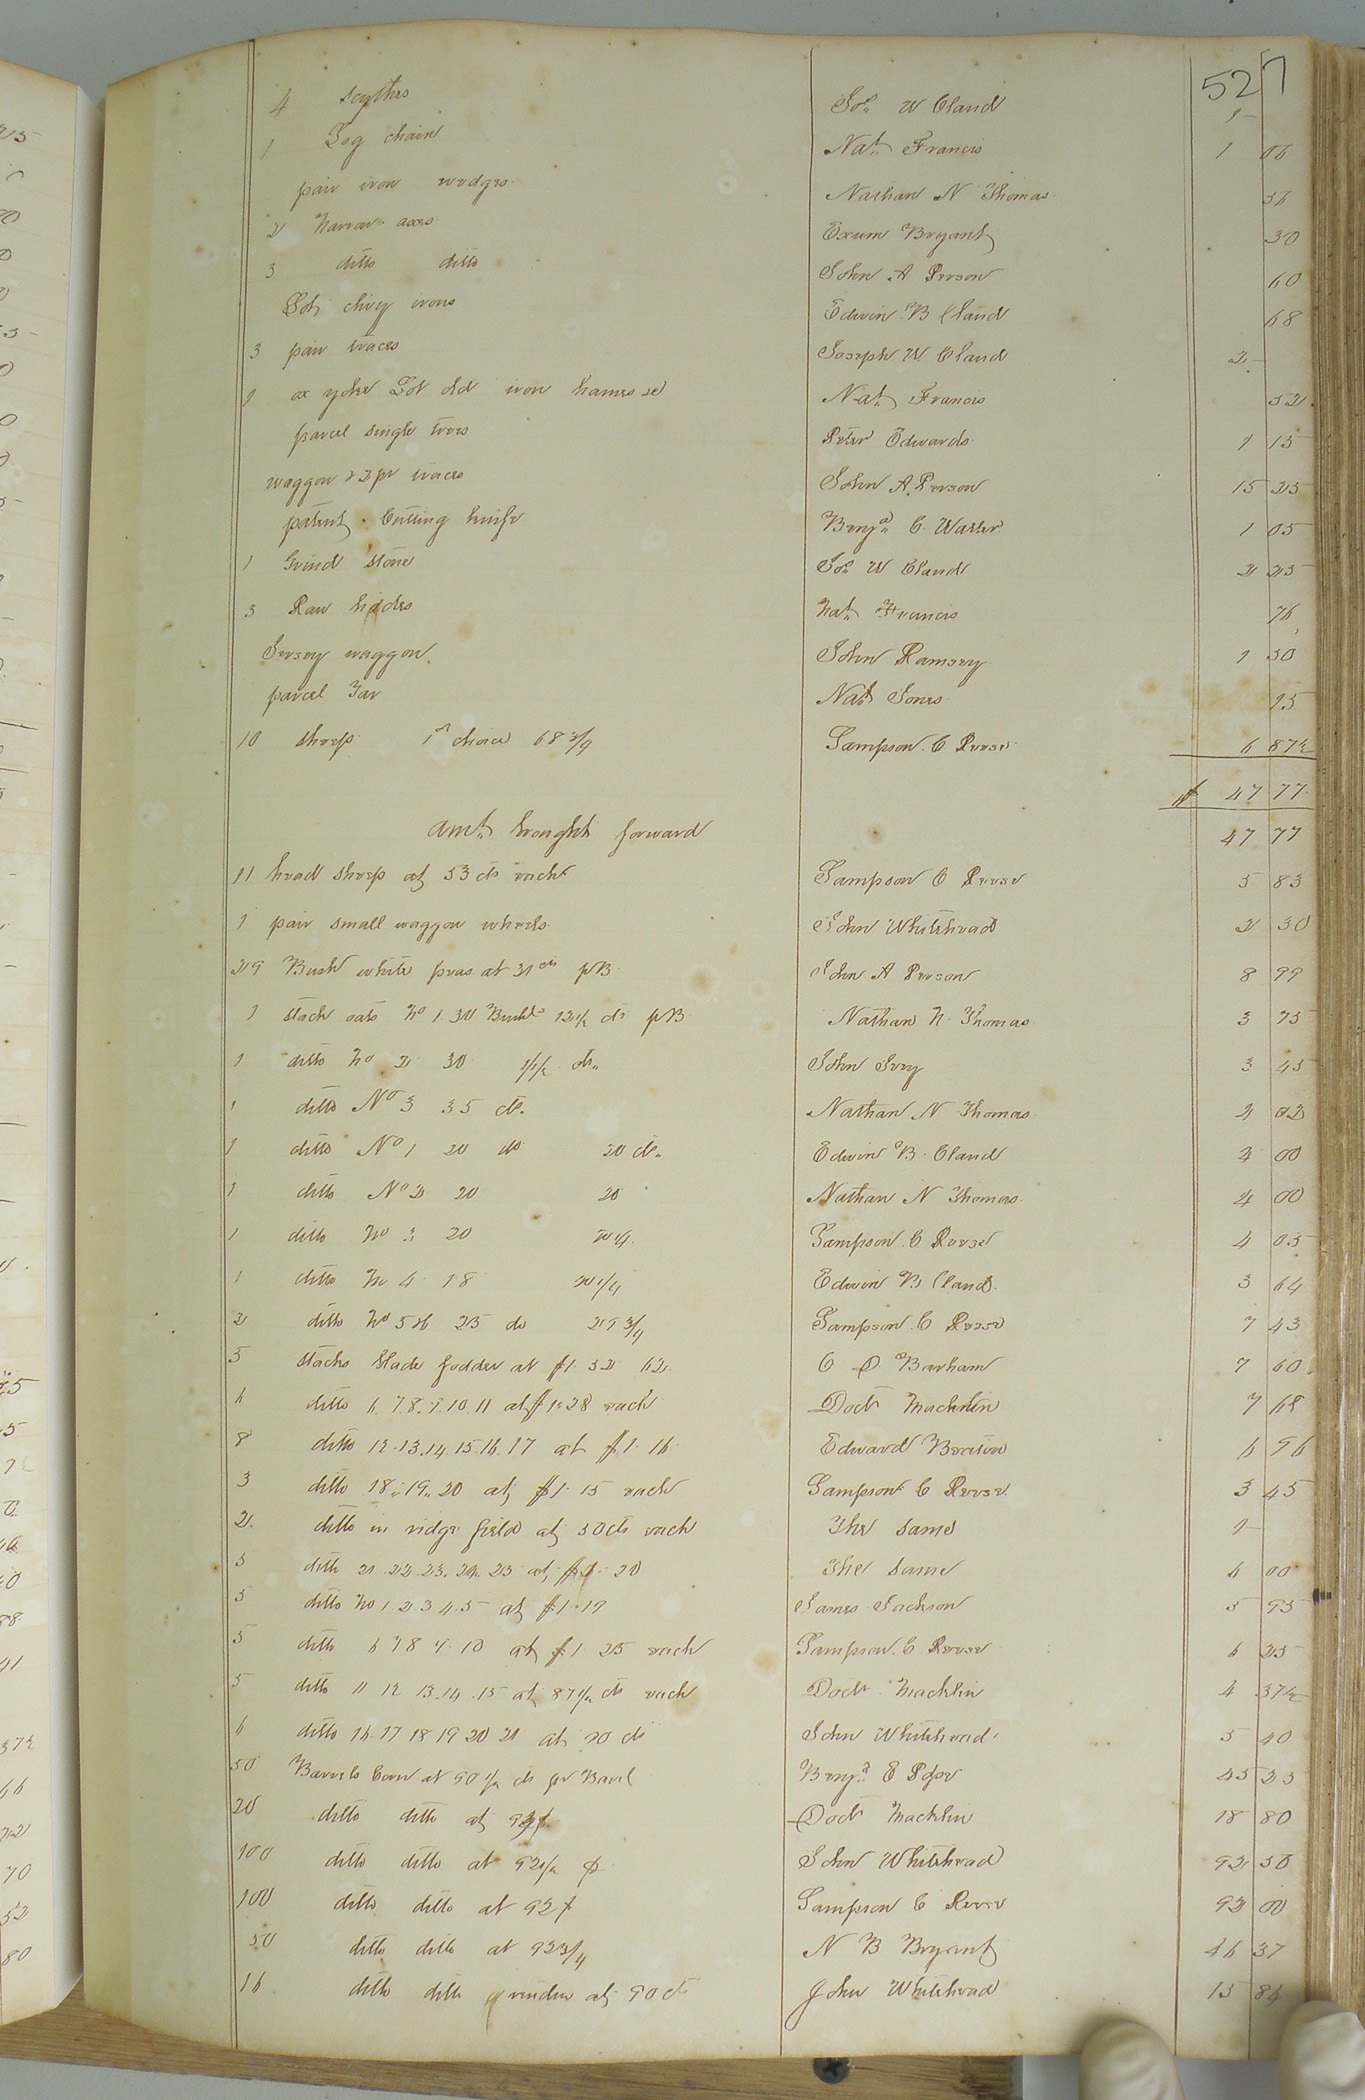 527
4 Scythes Jos. W Claud 1 -
1 Log chain Nat. Francis 1 06
pair iron wedges Nathan N Thomas 56
2 Narrow axes Exum Bryant 30
3 ditto ditto John A Person 60
Lot irons Edwin B Claud 68
3 pair traces Joseph W Claud 2 -
1 ox yoke Lot old iron hames &c Nat. Francis 52
parcel single trees Peter Edwards 1 15
waggon & 2 pr traces John A. Person 15 25
patent Cutting knife Benja. C. Waller 1 05
1 Grind Stone Jos. W Claud 2 25
3 Raw hides Nat. Francis 76
Jersey waggon John Ramsey 1 50
parcel Tar Nat Jones 15
10 sheep 1st choice 68 3/4 Sampson C Reese 6 87½
$ 47 77
amt. brought forward 47 77
11 head sheep at 53 cts each Sampson C Reese 5 83
1 pair small waggon wheels John Whitehead 2 30
29 Bush white peas at 31 cts pB John A Person 8 99
1 stack oats No 1 30 Bush 12½ cts pB Nathan N. Thomas 3 75
1 ditto No 2 30 11½ cts. John Ivey 3 45
1 ditto No 3 35 cts. Nathan N Thomas 02
1 ditto No 1 20 do 20 cts. Edwin B. Claud 4 00
1 ditto No 2 20 20 Nathan N Thomas 4 00
1 ditto No 3 20 20¼ Sampson C. Reese 4 05
1 ditto No 4 18 20 1/4 Edwin B Claud 3 64
2 ditto No 5 & 6 25 do 29 3/4 Sampson C Reese 7 43
5 stacks blade fodder at $1 52 C Barham 7 60
6 ditto 6.7.8.9.10.11 at $1.28 each Doct Macklin 7 68
ditto 12.13.14.15.16.17 at $1.16 Edward Beaton 6 96
3 ditto 18.19.20 at $1 15 each Sampson C Reese 3 45
2 ditto in ridge field at 50cts each The same 1 -
5 ditto 21.22.23.24.25 at $1.20 The same 6 00
5 ditto No 1 2 3 4.5 at $1.19 James Jackson 5 95
5 ditto 6 7 8 9.10 at $1 25 each Sampson C Reese 6 25
5 ditto 11 12 13.14.15 at 87½ cts each Doct Macklin 4 37½
6 ditto 16.17 18 19 20 21 at 90 cts John Whitehead 5 40
50 Barrels Corn at 90½ cts pr Barrel Benja. E Pope 45 25
20 ditto ditto at Doct Macklin 18 80
100 ditto ditto at 92½ John Whitehead 92 50
100 ditto ditto at 92 Sampson C Reese 92 00
50 ditto ditto at 92 3/4 N B Bryant 46 37
16 ditto ditto at 90 cts John Whitehead 15 84